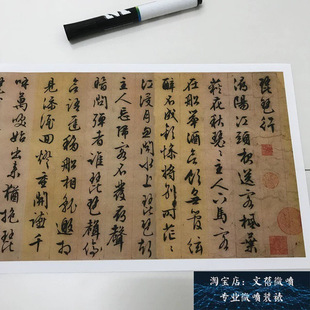 琵琶行
潯陽江頭夜送客楓葉
荻花秋瑟瑟主人下馬客
在船舉酒欲飲無管絃
醉不成歡慘將別別時茫茫
江浸月忽聞水上琵琶聲
主人忘歸客不發尋聲
暗問彈者誰琵琶聲停
欲語遲移船相近邀相
見添酒回燈重開讌千
呼萬喚始出來猶抱琵琶
淘宝店：文蓓微喷
专业微喷装裱